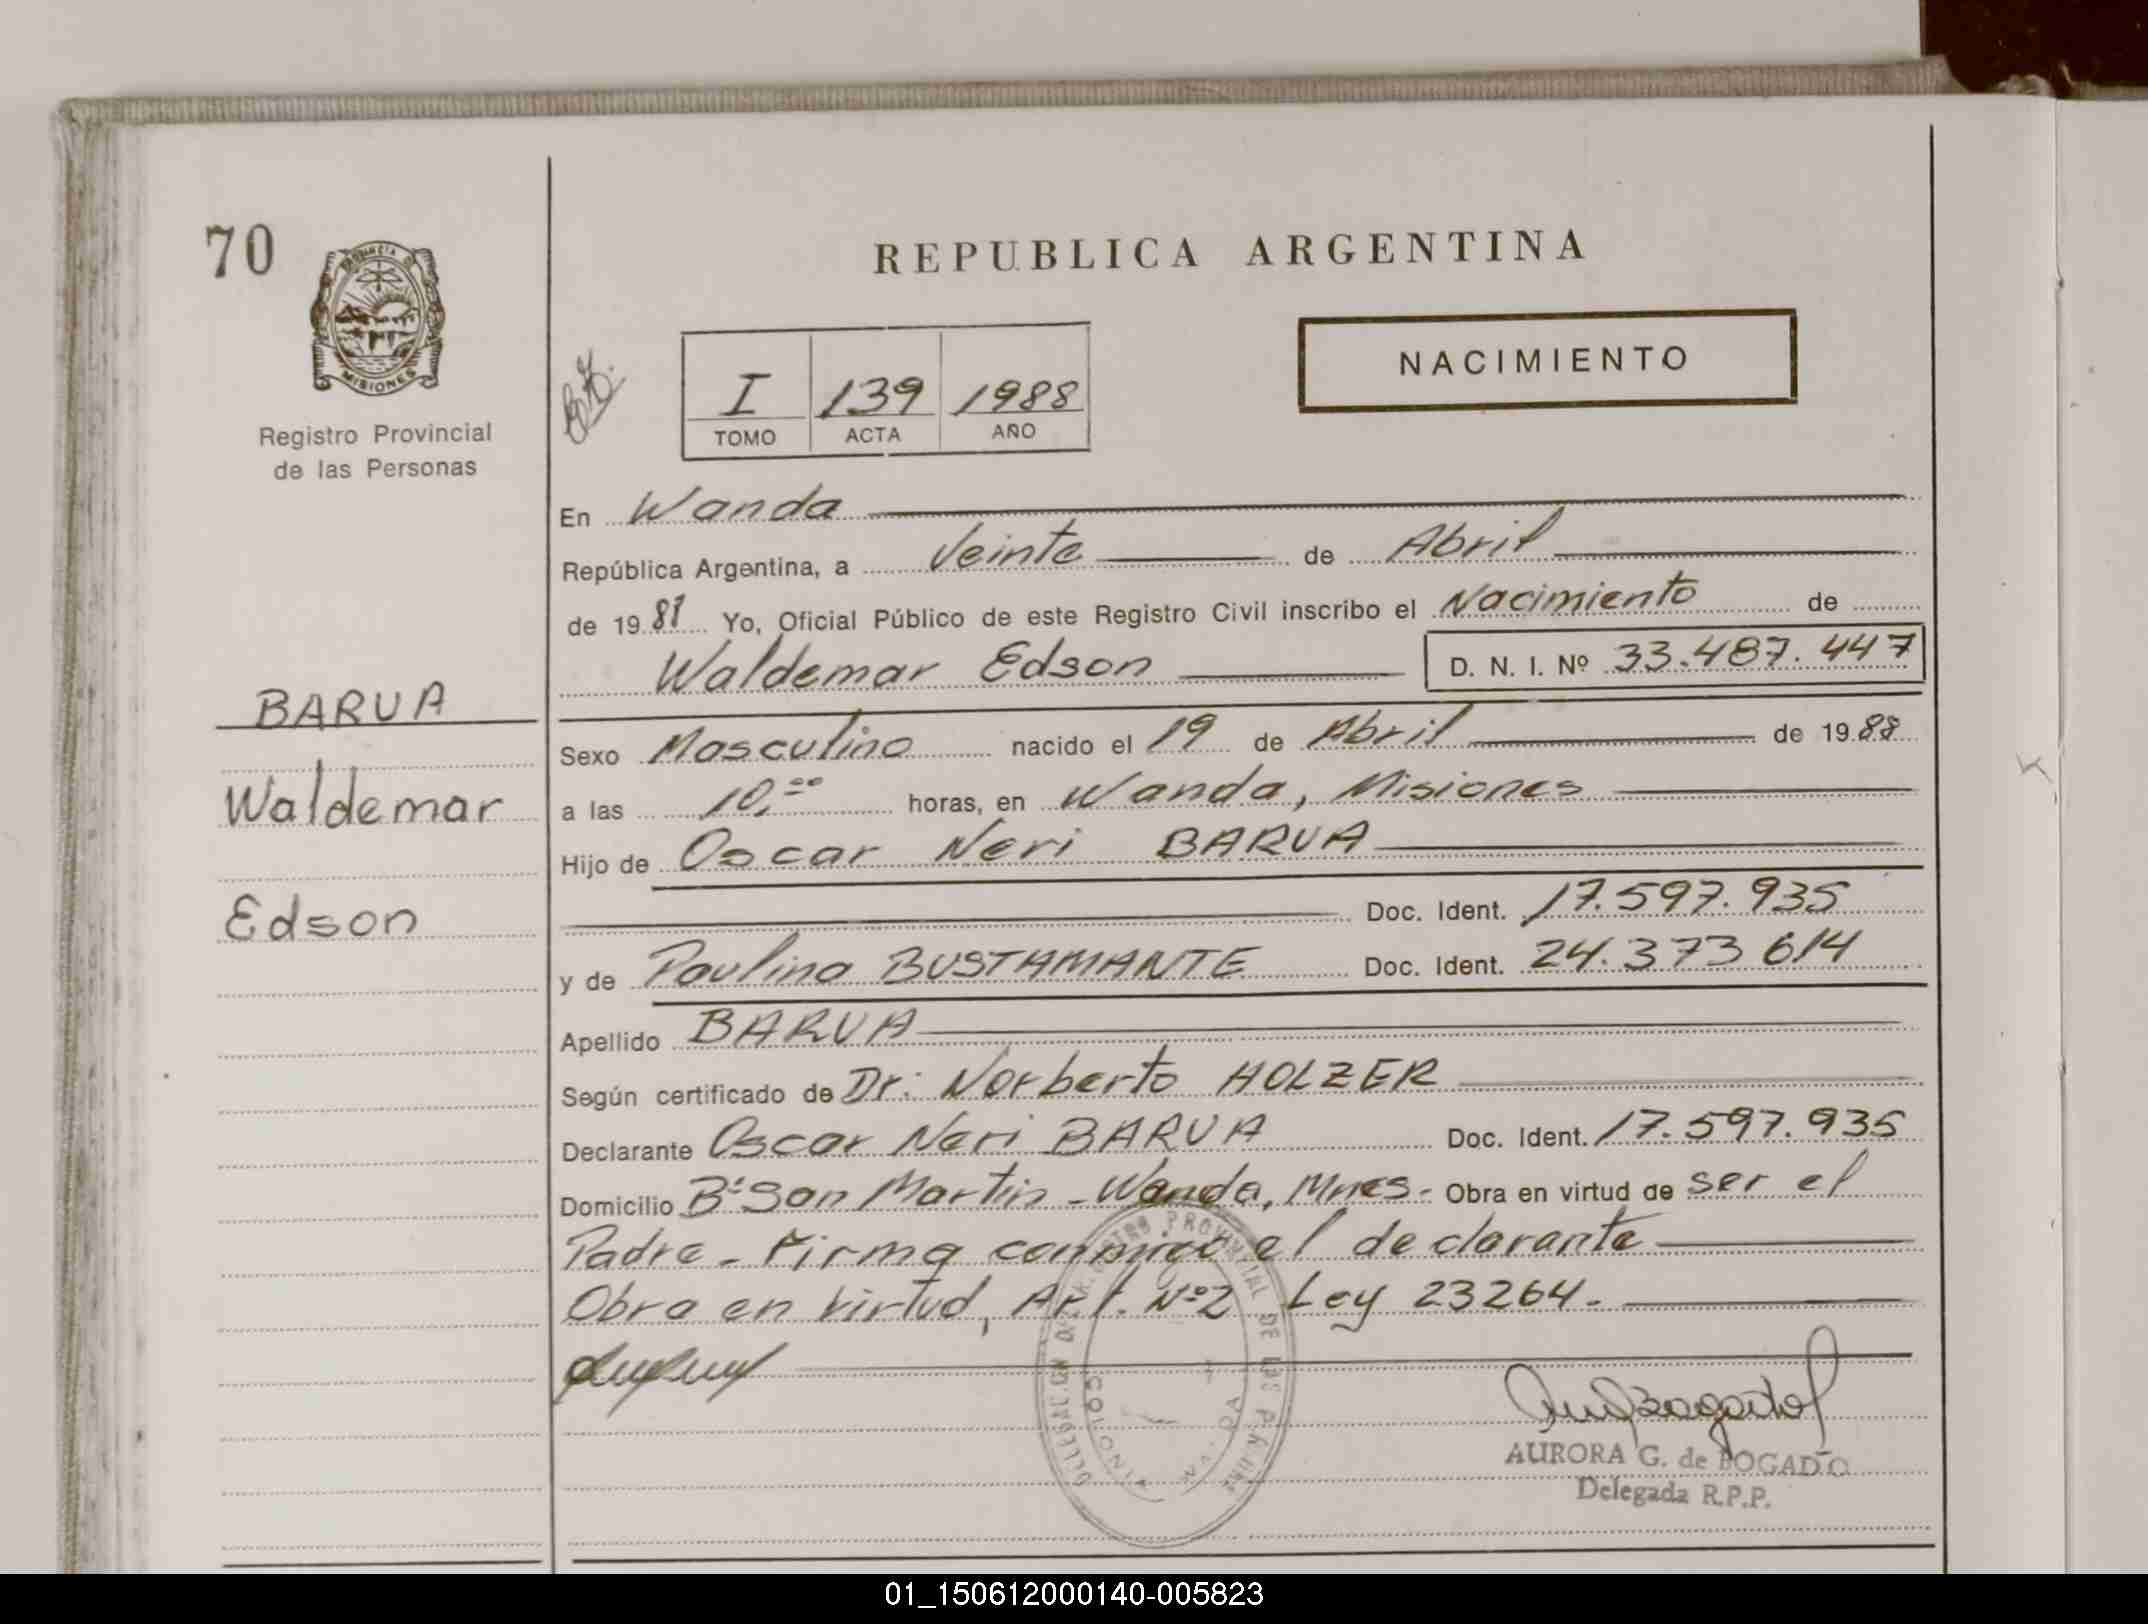 70
PROVINCIA DE
MISIONES
Registro Provincial
de las Personas
REPUBLICA ARGENTINA
NACIMIENTO
I 139 1988
TOMO ACTA AÑO
En Wanda
República Argentina, a Veinte de Abril
de 1988 Yo, Oficial Público de este Registro Civil inscribo el Nacimiento de
Waldemar Edson D. N. I. Nº 33.487.447
BARUA
Waldemar
Edson
Sexo Masculino nacido el 19 de Abril de 1988
a las 10,00 horas, en Wanda, Misiones
Hijo de Oscar Neri BARUA
Doc. Ident. 17.597.935
y de Paulina BUSTAMANTE Doc. Ident. 24.373 614
Apellido BARUA
Según certificado de Dr: Norberto HOLZER
Declarante Oscar Neri BARUA Doc. Ident. 17.597.935
Domicilio Bº San Martin - Wanda, Mnes- Obra en virtud de ser el
Padre - Firma conmigo el declarante
Obra en virtud, Art. Nº2 Ley 23264.
AURORA G. de BOGADO
Delegada R.P.P.
01_150612000140-005823